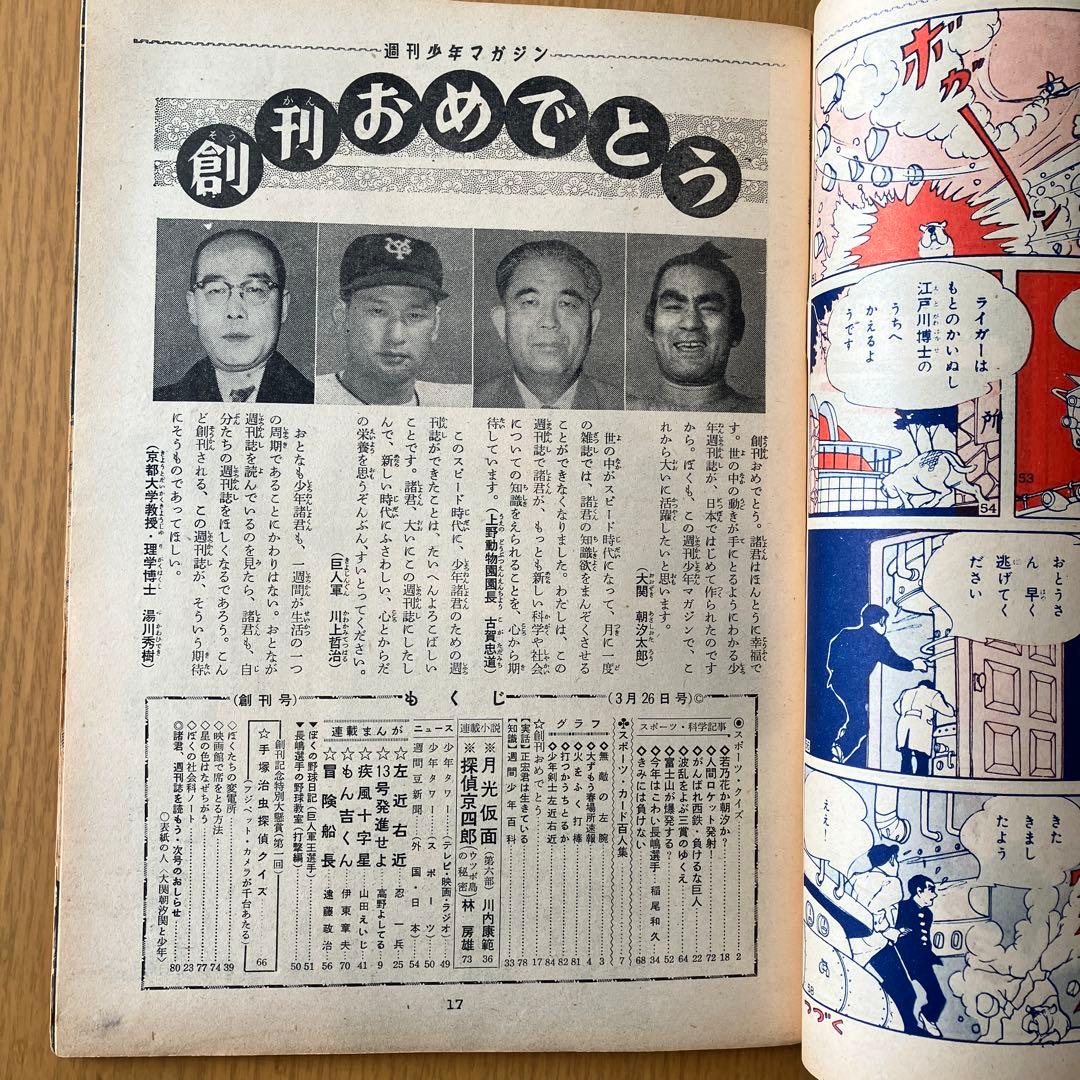 週刊少年マガジン
創刊おめでとう
そう
かん
創刊おめでとう。諸君はほんとうに幸福で
す。世の中の動きが手にとるようにわかる少
年週刊誌が、日本ではじめて作られたのです
から。ぼくも、この週刊少年マガジンで、こ
れから大いに活躍したいと思います。
(大関 朝汐太郎)
世の中がスピード時代になって、月に一度
の雑誌では、諸君の知識欲をまんぞくさせる
ことができなくなりました。わたしは、この
週刊誌で諸君が、もっとも新しい科学や社会
についての知識をえられることを、心から期
待しています。(上野動物園園長 古賀忠道)
このスピード時代に、少年諸君のための週
刊誌ができたことは、たいへんよろこばしい
ことです。諸君、大いにこの週刊誌にしたし
んで、新しい時代にふさわしい、心とからだ
の栄養を思うぞんぶん、すいとってください。
(巨人軍 川上哲治)
おとなも少年諸君も、一週間が生活の一つ
の周期であることにかわりはない。おとなが
週刊誌を読んでいるのを見たら、諸君も、自
分たちの週刊誌をほしくなるであろう。こん
ど創刊される、この週刊誌が、そういう期待
にそうものであってほしい。
(京都大学教授・理学博士 湯川秀樹)
(創刊号)
もくじ
(3月26日号)©
◎スポーツ・クイズ 2
スポーツ・科学記事
◆若乃花か朝汐か? 18
◆人間ロケット発射! 72
◆がんばれ西鉄・負けるな巨人 22
◆波乱をよぶ三賞のゆくえ 64
◆富士山が爆発する? 52
◆今年はこわい長嶋選手 稲尾和久 34
◆きみみには負けない 68
♣スポーツ・カード百人集 7
グラフ
◆無敵の左腕 3
◆大ずもう春場所速報 4
◆火をふく打棒 81
◆打つかうちとるか 82
◆少年剣士左近右近 84
☆創刊おめでとう 17
【実話】正宏君は生きている 78
【知識】週間少年百科 33
連載小説
※月光仮面(第六部) 川内康範 36
※探偵京四郎(ウツボ島の秘密) 林房雄 73
ニュース
少年タワー(テレビ・映画・ラジオ) 49
少年タワー(スポーツ) 50
週間豆新聞(外国・日本) 54
連載まんが
☆左近右近 忍一兵 25
☆13号発進せよ 高野よしてる 9
☆疾風十字星 山田えいじ 41
☆もん吉くん 伊東章夫 70
☆冒険船長 遠藤政治 56
▼ぼくの野球日記(巨人軍王選手) 51
▼長嶋選手の野球教室(打撃編) 50
創刊記念特別大懸賞(第一回)
☆手塚治虫探偵クイズ 66
(フジペット・カメラが千台あたる)
◇ぼくたちの変電所 39
◇映画館で席をとる方法 74
◇星の色はなぜちがう 77
◇ぼくの社会科ノート 23
◎諸君、週刊誌を読もう・次号のおしらせ 80
○表紙の人(大関朝汐関と少年)
17
ボガーン
ライガーは
もとのかいぬし
江戸川博士の
うちへ
かえるよ
うです
所
53
54
おとうさ
ん 早く
逃げてく
ださい
きた
きまし
たよう
ええ!
58
つづく